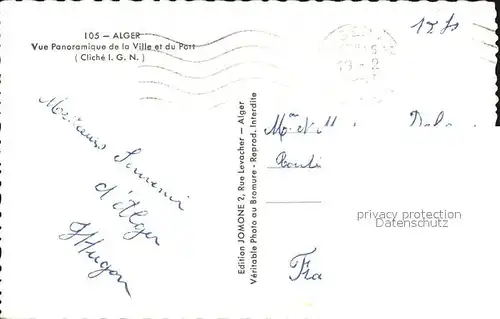 105 — ALGER
Vue Panoramique de la Ville et du Port
( Cliché I. G. N. )
Meilleurs Souvenir
d'Alger
Hugon
Edition JOMONE 2, Rue Levacher — Alger
Véritable Photo au Bromure - Reprod. Interdite
Mme et M
Fra
privacy protection
Datenschutz